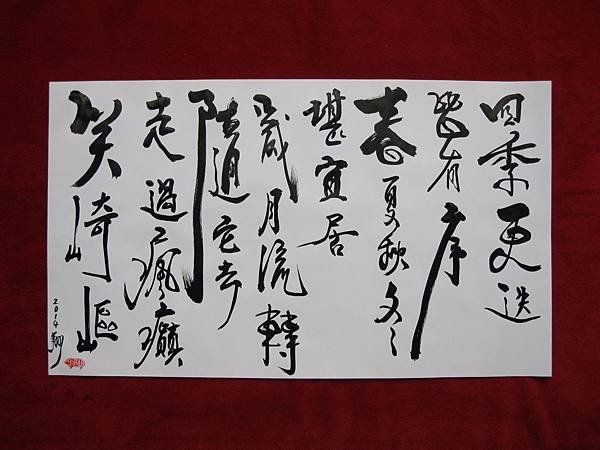 四季更迭
皆有序
春夏秋冬
堪宜居
歲月流轉
隨它去
走過瘋癲
笑崎嶇
2014 翔